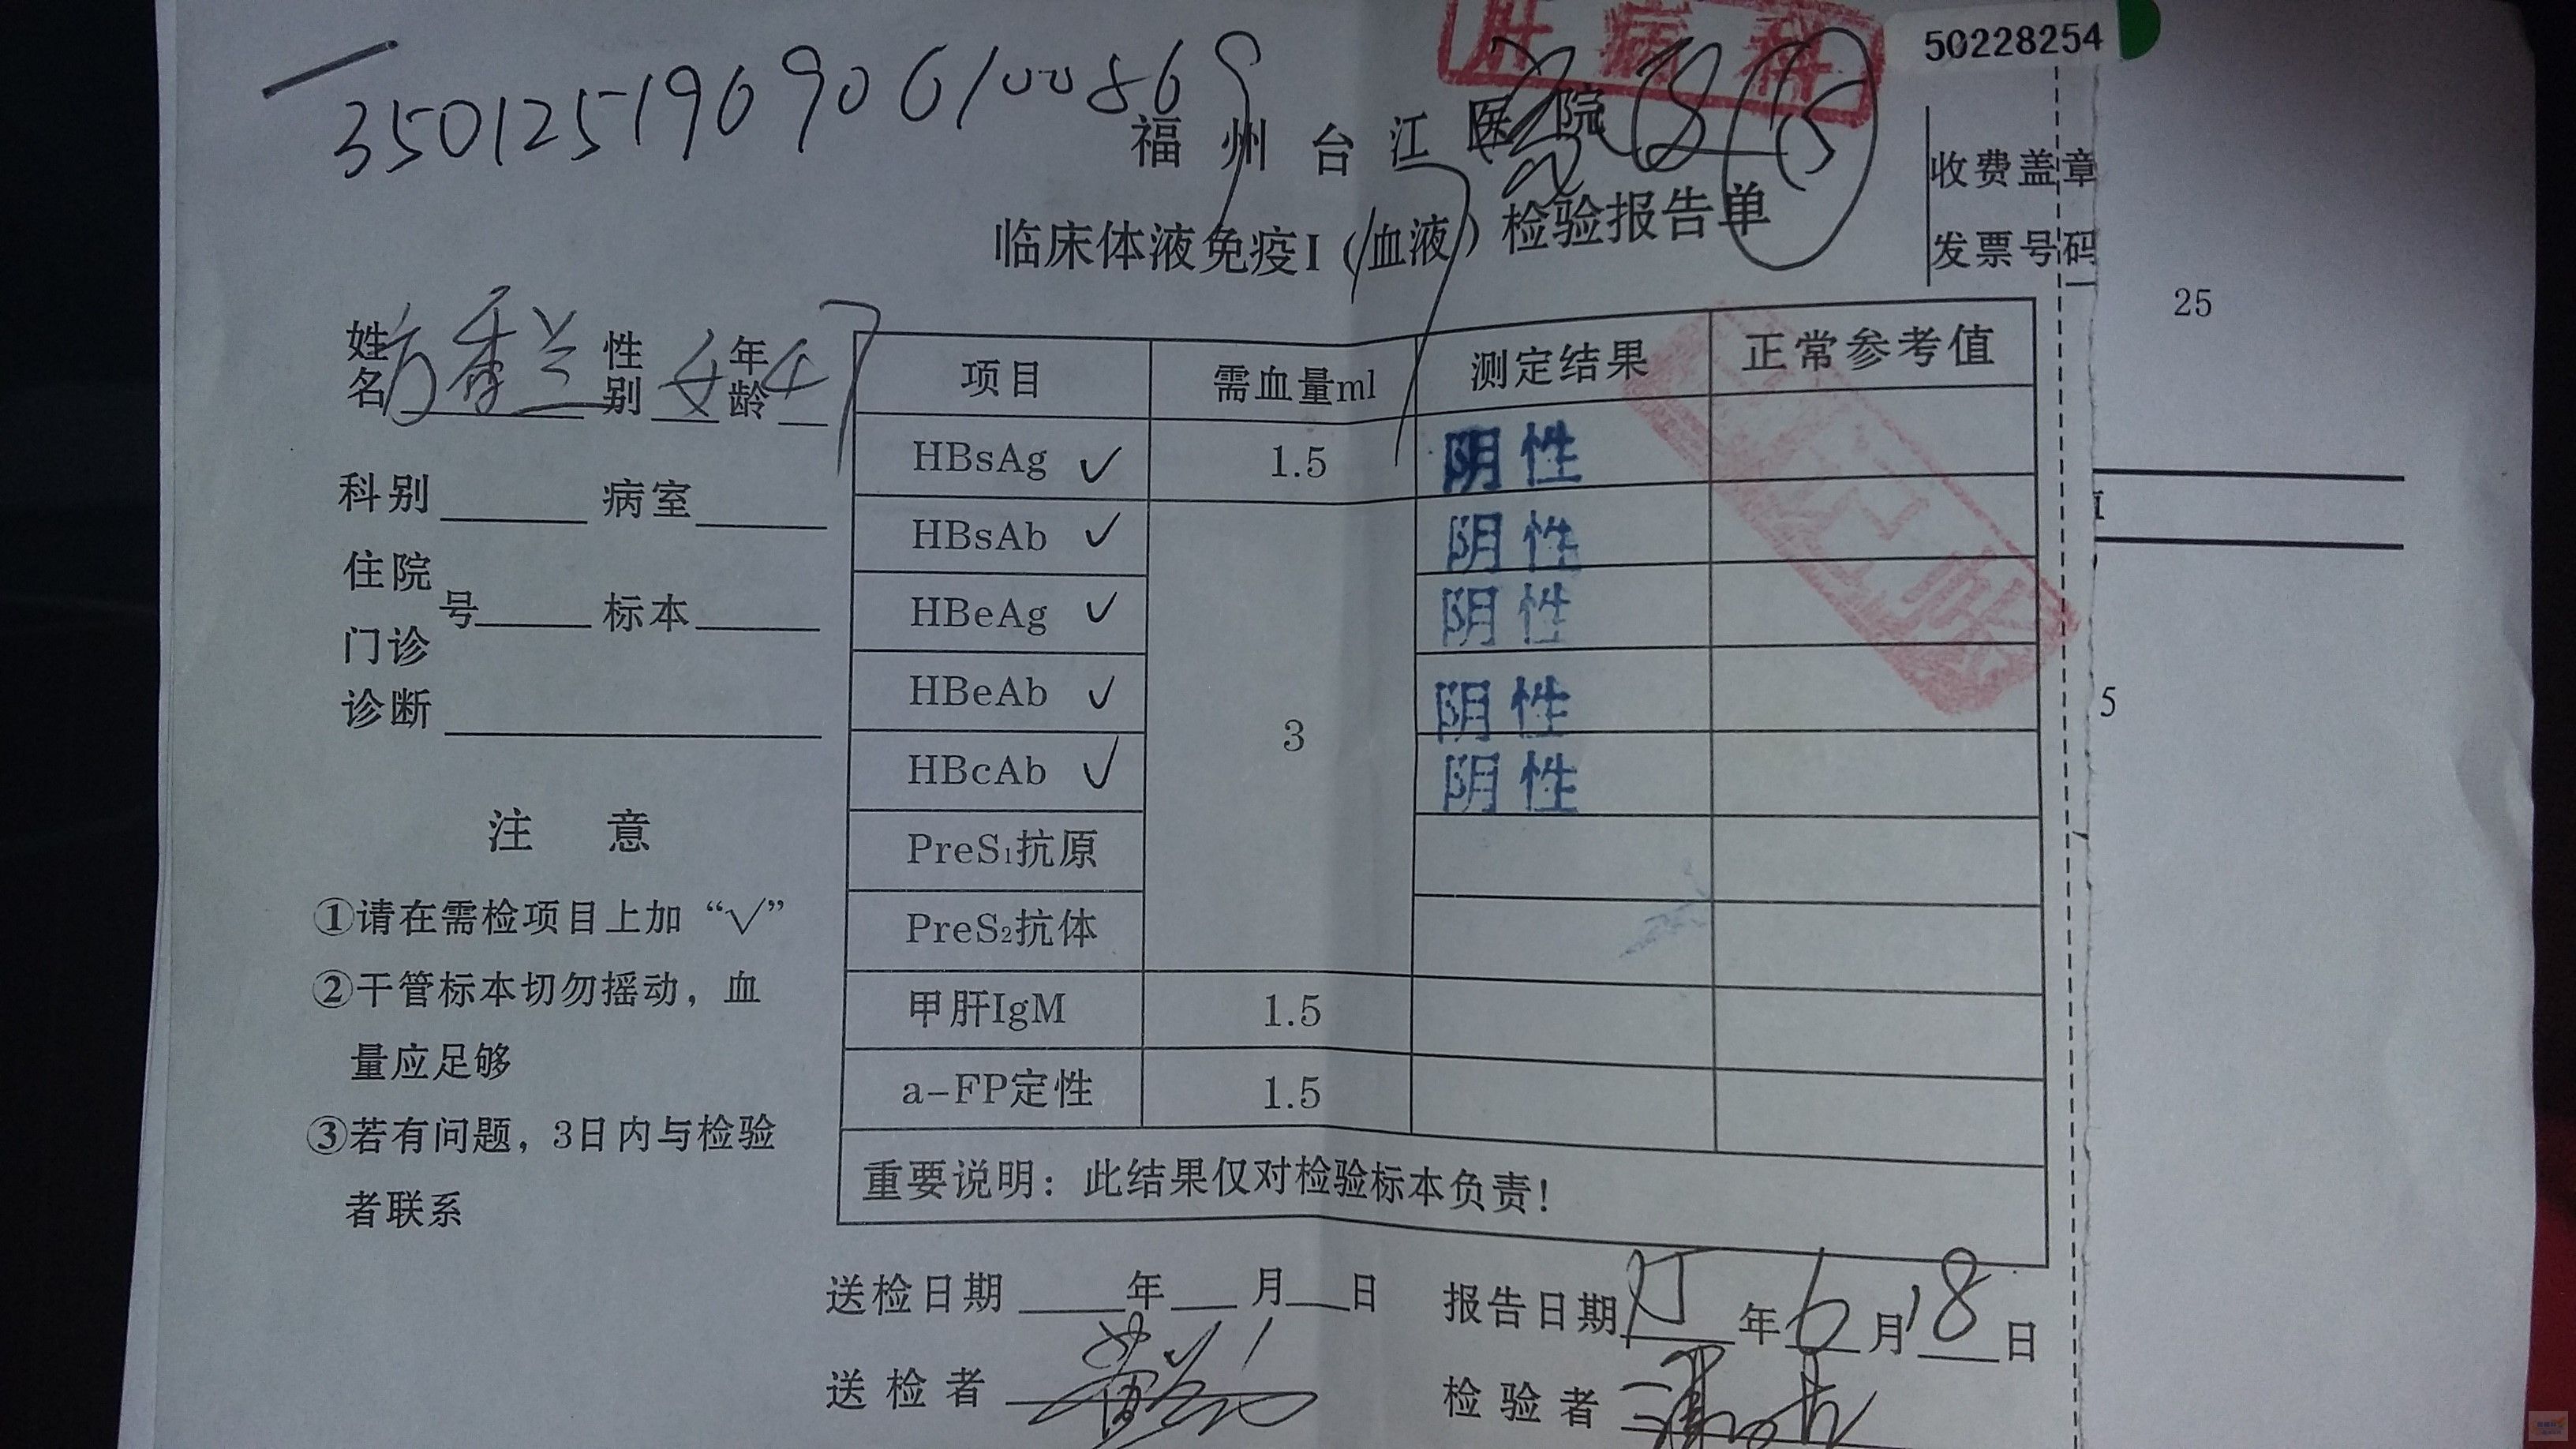 肝病科
50228254
福州台江医院
临床体液免疫I（血液）检验报告单
收费盖章
发票号码
25
姓名 方香兰 性别 女 年龄 47
科别 病室
住院
号 标本
门诊
诊断
项目 需血量ml 测定结果 正常参考值
HBsAg ✓ 1.5 阴性
HBsAb ✓ 阴性
HBeAg ✓ 阴性
HBeAb ✓ 3 阴性
HBcAb ✓ 阴性
PreS₁抗原
PreS₂抗体
甲肝IgM 1.5
a-FP定性 1.5
重要说明：此结果仅对检验标本负责！
5
注 意
①请在需检项目上加“√”
②干管标本切勿摇动，血
量应足够
③若有问题，3日内与检验
者联系
送检日期 年 月 日 报告日期 15 年 6 月 18 日
送检者 检验者